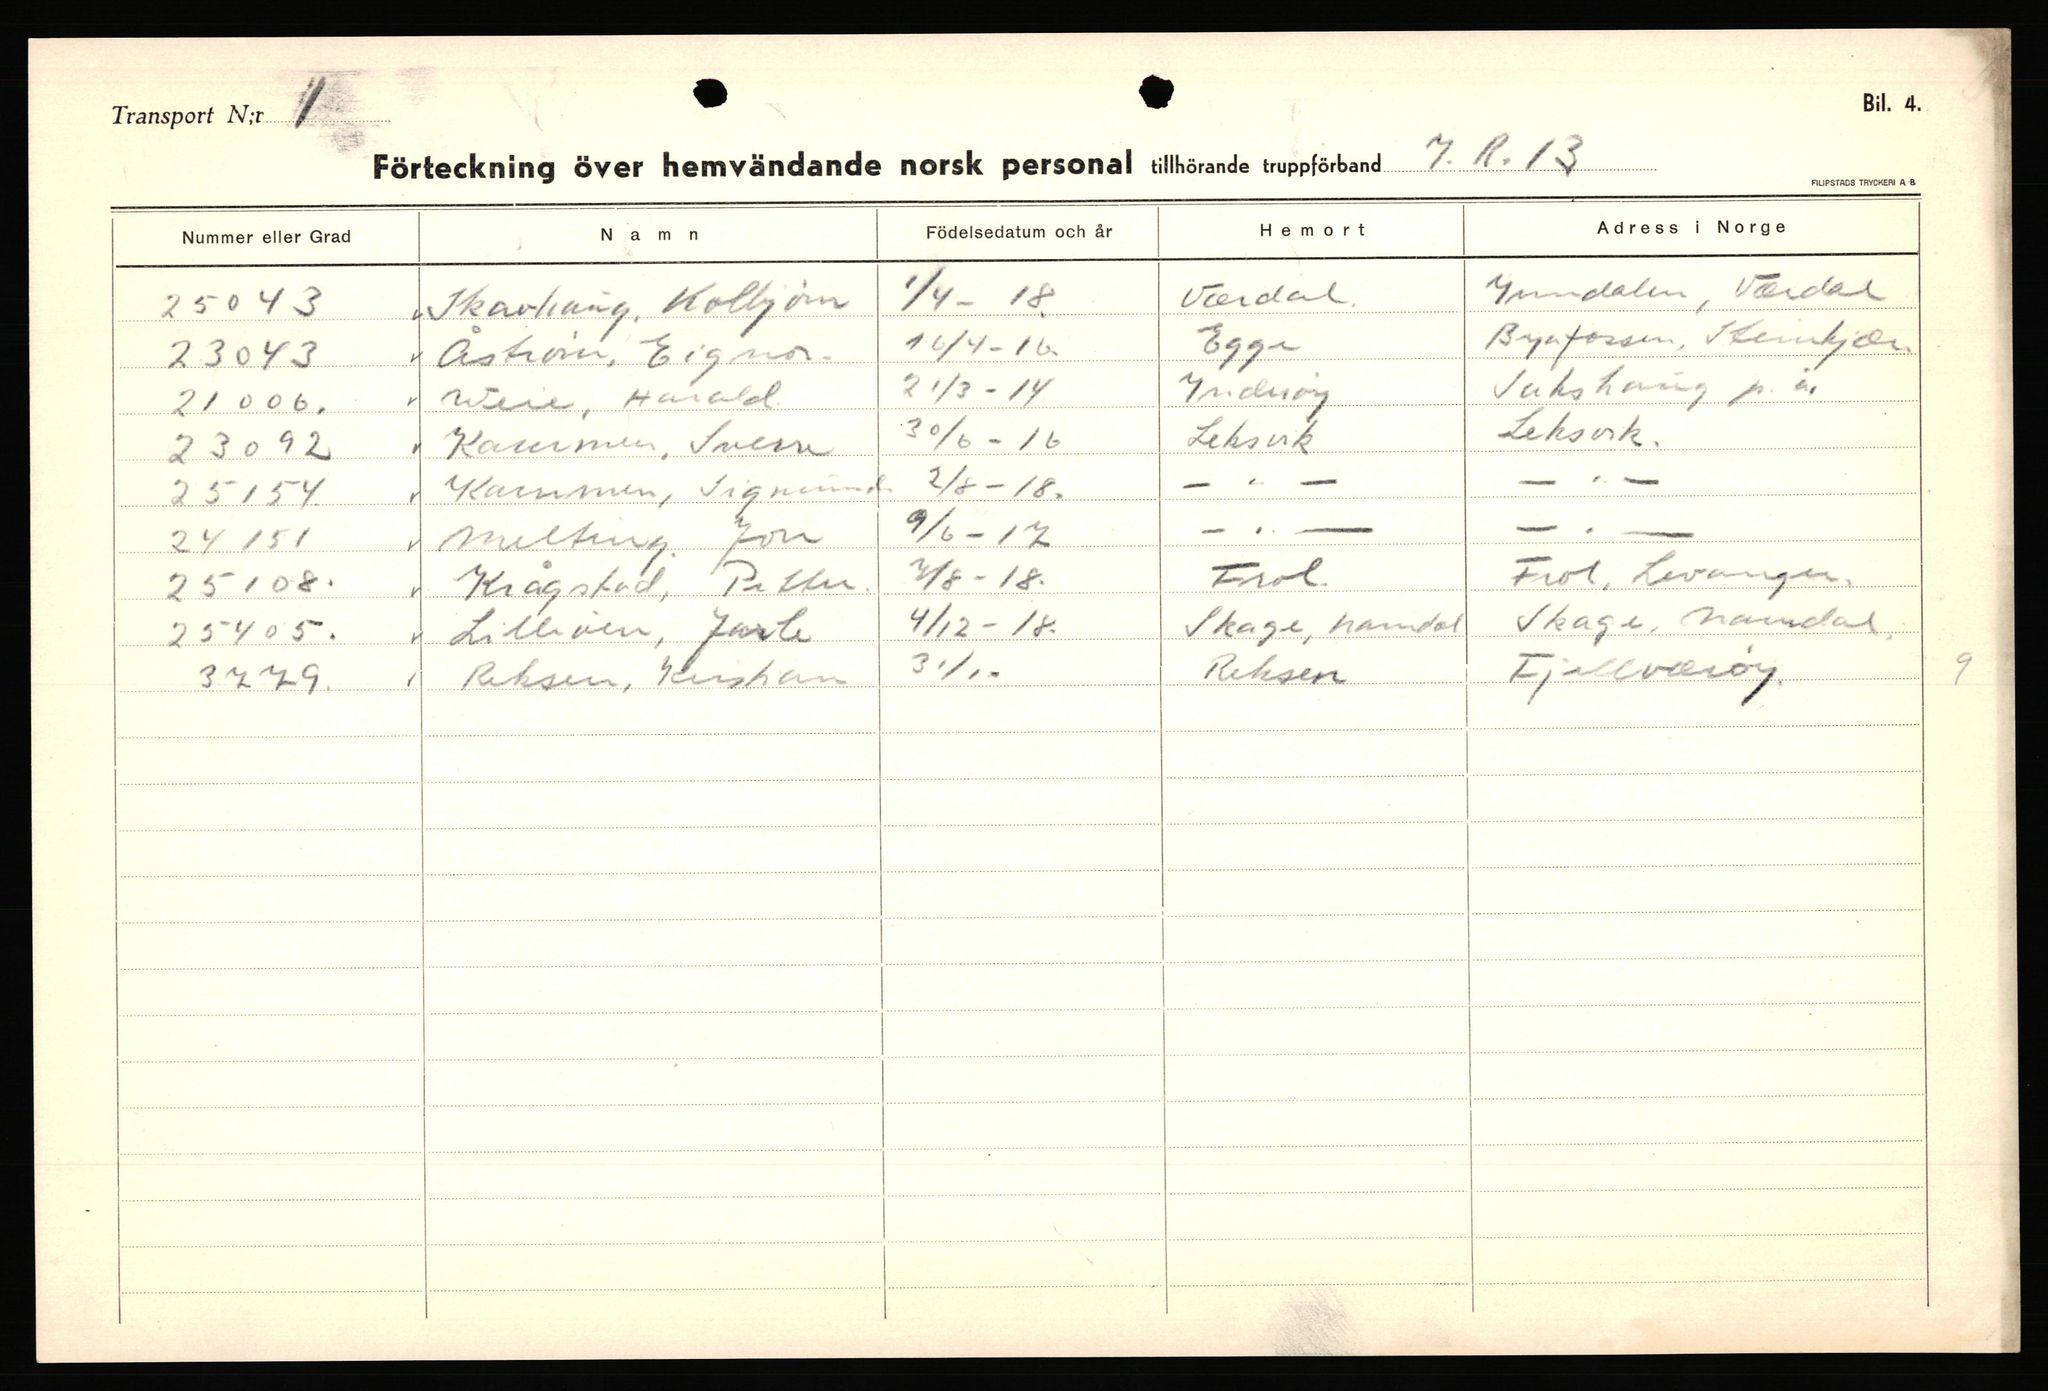 Transport N;r 1
Bil. 4.
Förteckning över hemvändande norsk personal tillhörande truppförband I. R. 13
FILIPSTADS TRYCKERI A B
Nummer eller Grad Namn Födelsedatum och år Hemort Adress i Norge
25043 Skavhaug, Kolbjörn 1/4 - 18. Værdal. Inndalen, Værdal
23043 Åström, Eignor. 16/4 - 16. Egge Bynfossen, Steinkjær.
21006. Weie, Harald 21/3 - 14 Inderöy Sakshaug p. å.
23092 Kammen, Sverre 30/6 - 16 Leksvik Leksvik.
25154 Kammen, Sigmund 2/8 - 18. - " - - " -
24151 Melting. Jon 9/6 - 17 - " - - " -
25108. Krågstad, Petter. /8 - 18. Frol. Frol, Levanger.
25405. Jarle 4/12 - 18. Skage, Namdal Skage, Namdal.
3779. Reksen, Kristian 31/1. Reksen Fjellværöy.
9